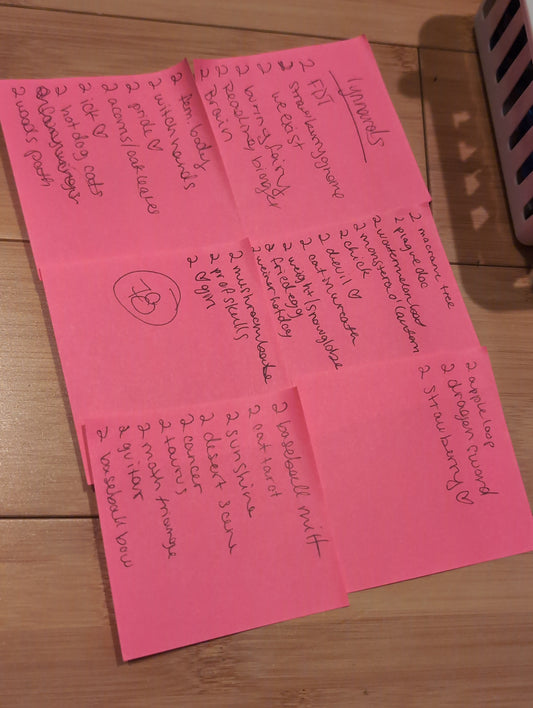 lynnards
2 FDT
2 strawberry gnome
2 we exist
2 burning fairy
2 Reading bionger
2 Brain
2 fem body
2 witch hands
2 pride ♡
2 acorns/oak leaves
2 ick ♡
2 hot dog cats
2 woods path
2 macrame tree
2 plague doc
2 watermelon bat
2 monstera o'lantern
2 chick
2 devil ♡
2 cat in wreath
2 weight/snowglobe
2 fried egg
2 weiner hotdog
2 mushroom
2 prop skulls
2 ♡ gm
2 apple loop
2 dragon sword
2 strawberry ♡
2 baseball mitt
2 cat tarot
2 sunshine
2 desert scene
2 cancer
2 taurus
2 math triangle
2 guitar
2 baseball bow